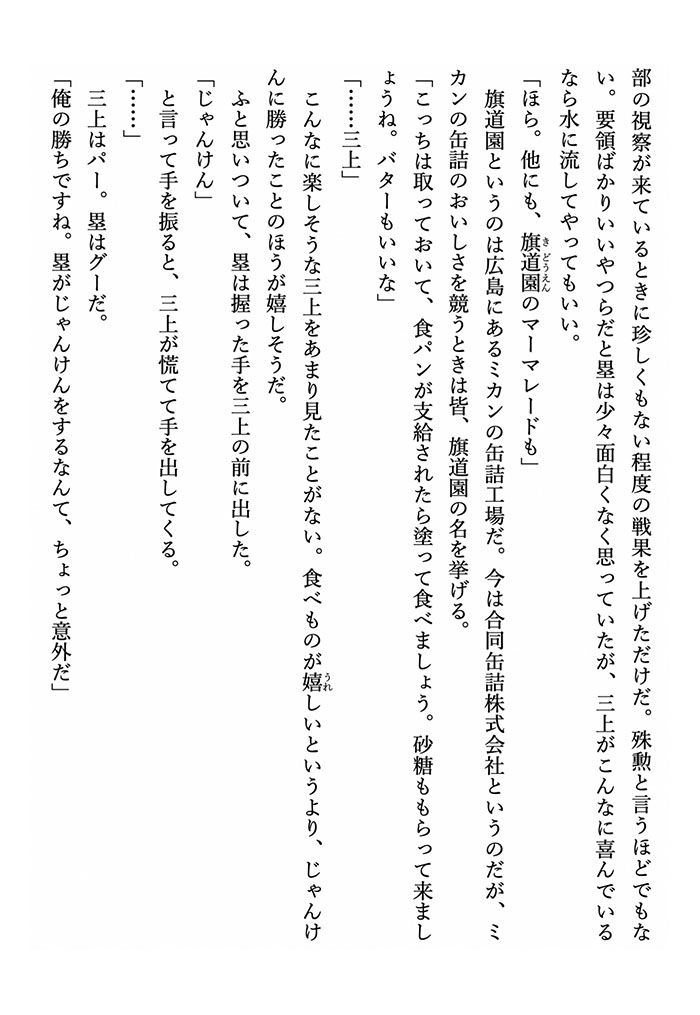 部の視察が来ているときに珍しくもない程度の戦果を上げただけだ。殊勲と言うほどでもな
い。要領ばかりいいやつらだと塁は少々面白くなく思っていたが、三上がこんなに喜んでいる
なら水に流してやってもいい。
「ほら。他にも、旗道園のマーマレードも」
きどうえん
旗道園というのは広島にあるミカンの缶詰工場だ。今は合同缶詰株式会社というのだが、ミ
カンの缶詰のおいしさを競うときは皆、旗道園の名を挙げる。
「こっちは取っておいて、食パンが支給されたら塗って食べましょう。砂糖ももらって来まし
ょうね。バターもいいな」
「……三上」
こんなに楽しそうな三上をあまり見たことがない。食べものが嬉しいというより、じゃんけ
うれ
んに勝ったことのほうが嬉しそうだ。
ふと思いついて、塁は握った手を三上の前に出した。
「じゃんけん」
と言って手を振ると、三上が慌てて手を出してくる。
「……」
三上はパー。塁はグーだ。
「俺の勝ちですね。塁がじゃんけんをするなんて、ちょっと意外だ」